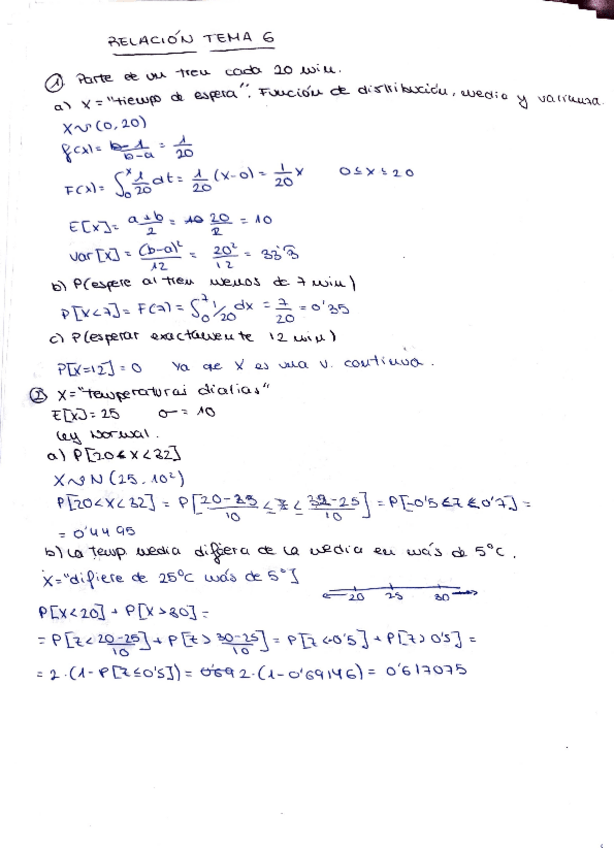 RELACIÓN TEMA 6
① Parte de un tren cada 20 min.
a) X = "tiempo de espera". Función de distribución, media y varianza.
X ~ (0, 20)
f(x) = 1/b-a = 1/20
F(x) = ∫₀ˣ 1/20 dt = 1/20 (x-0) = 1/20 x 0 ≤ x ≤ 20
E[X] = a+b/2 = 20/2 = 10
Var[X] = (b-a)²/12 = 20²/12 = 33'3
b) P(espere al tren menos de 7 min)
P[X<7] = F(7) = ∫₀⁷ 1/20 dx = 7/20 = 0'35
c) P(esperar exactamente 12 min)
P[X=12] = 0 Ya que X es una v. continua.
② X = "temperaturas diarias"
E[X] = 25 σ = 10
Ley Normal.
a) P[20 < X < 32]
X ~ N(25, 10²)
P[20<X<32] = P[20-25/10 ≤ z ≤ 32-25/10] = P[-0'5 ≤ z ≤ 0'7] =
= 0'4495
b) La temp. media difiera de la media en más de 5°C.
X = "difiere de 25°C más de 5°"
20 25 30
P[X<20] + P[X>30] =
= P[z < 20-25/10] + P[z > 30-25/10] = P[z<-0'5] + P[z>0'5] =
= 2·(1-P[z≤0'5]) = 2·(1-0'69146) = 0'617075